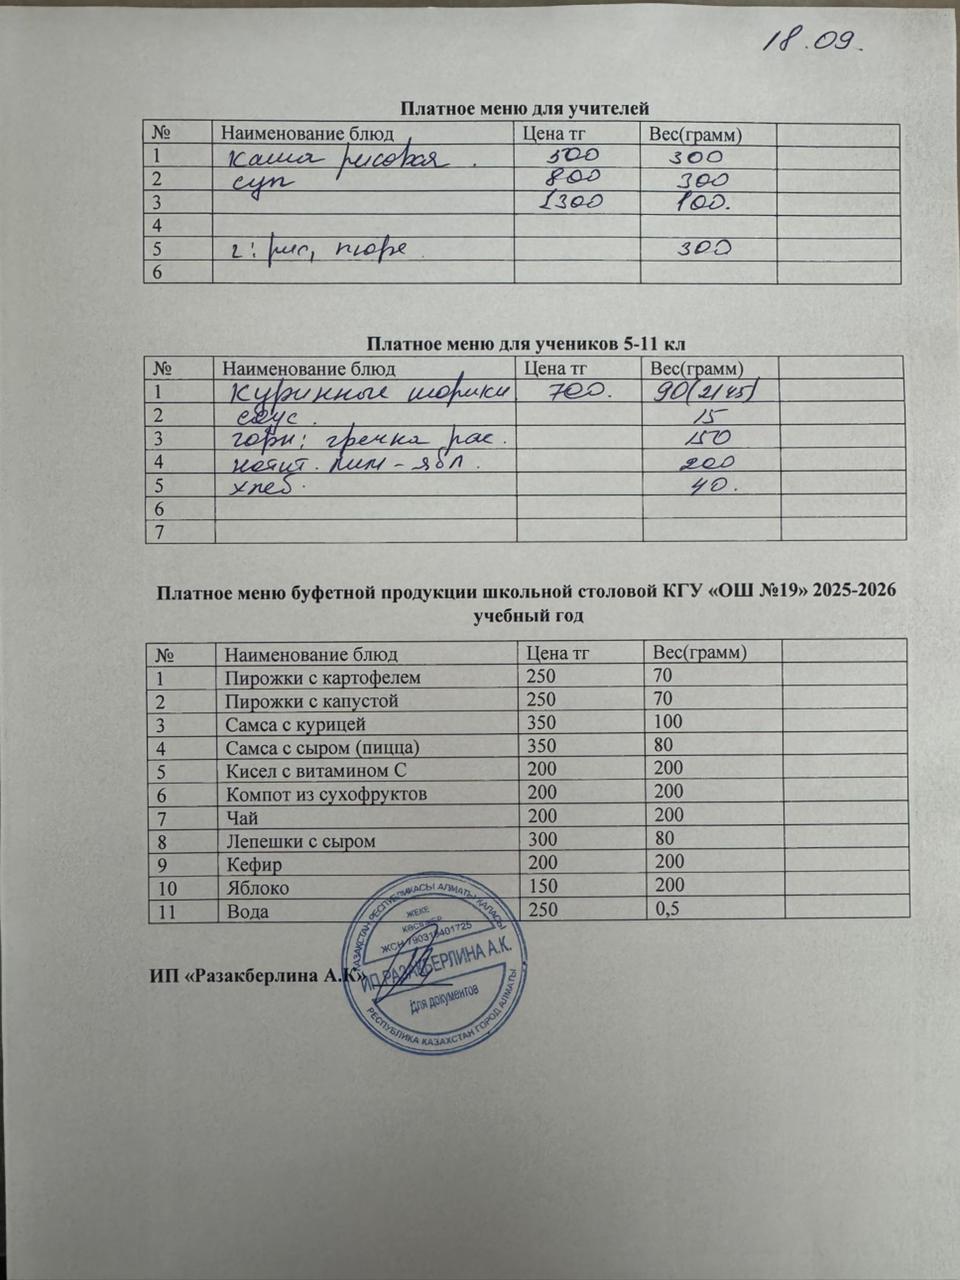 18.09.
Платное меню для учителей
№ Наименование блюд Цена тг Вес(грамм)
1 Каша рисовая. 500 300
2 суп 800 300
3 1300 100.
4
5 г: рис, пюре 300
6
Платное меню для учеников 5-11 кл
№ Наименование блюд Цена тг Вес(грамм)
1 Куринные шорики 700. 90(2/45)
2 соус. 15
3 горн: гречка рас. 150
4 лим-ябл. 200
5 хлеб. 40.
6
7
Платное меню буфетной продукции школьной столовой КГУ «ОШ №19» 2025-2026
учебный год
№ Наименование блюд Цена тг Вес(грамм)
1 Пирожки с картофелем 250 70
2 Пирожки с капустой 250 70
3 Самса с курицей 350 100
4 Самса с сыром (пицца) 350 80
5 Кисел с витамином С 200 200
6 Компот из сухофруктов 200 200
7 Чай 200 200
8 Лепешки с сыром 300 80
9 Кефир 200 200
10 Яблоко 150 200
11 Вода 250 0,5
ҚАЗАҚСТАН РЕСПУБЛИКАСЫ АЛМАТЫ ҚАЛАСЫ
ЖЕКЕ
КӘСІПКЕР
ИП «Разакберлина А.К»
ИП РАЗАКБЕРЛИНА А.К.
Для документов
РЕСПУБЛИКА КАЗАХСТАН ГОРОД АЛМАТЫ